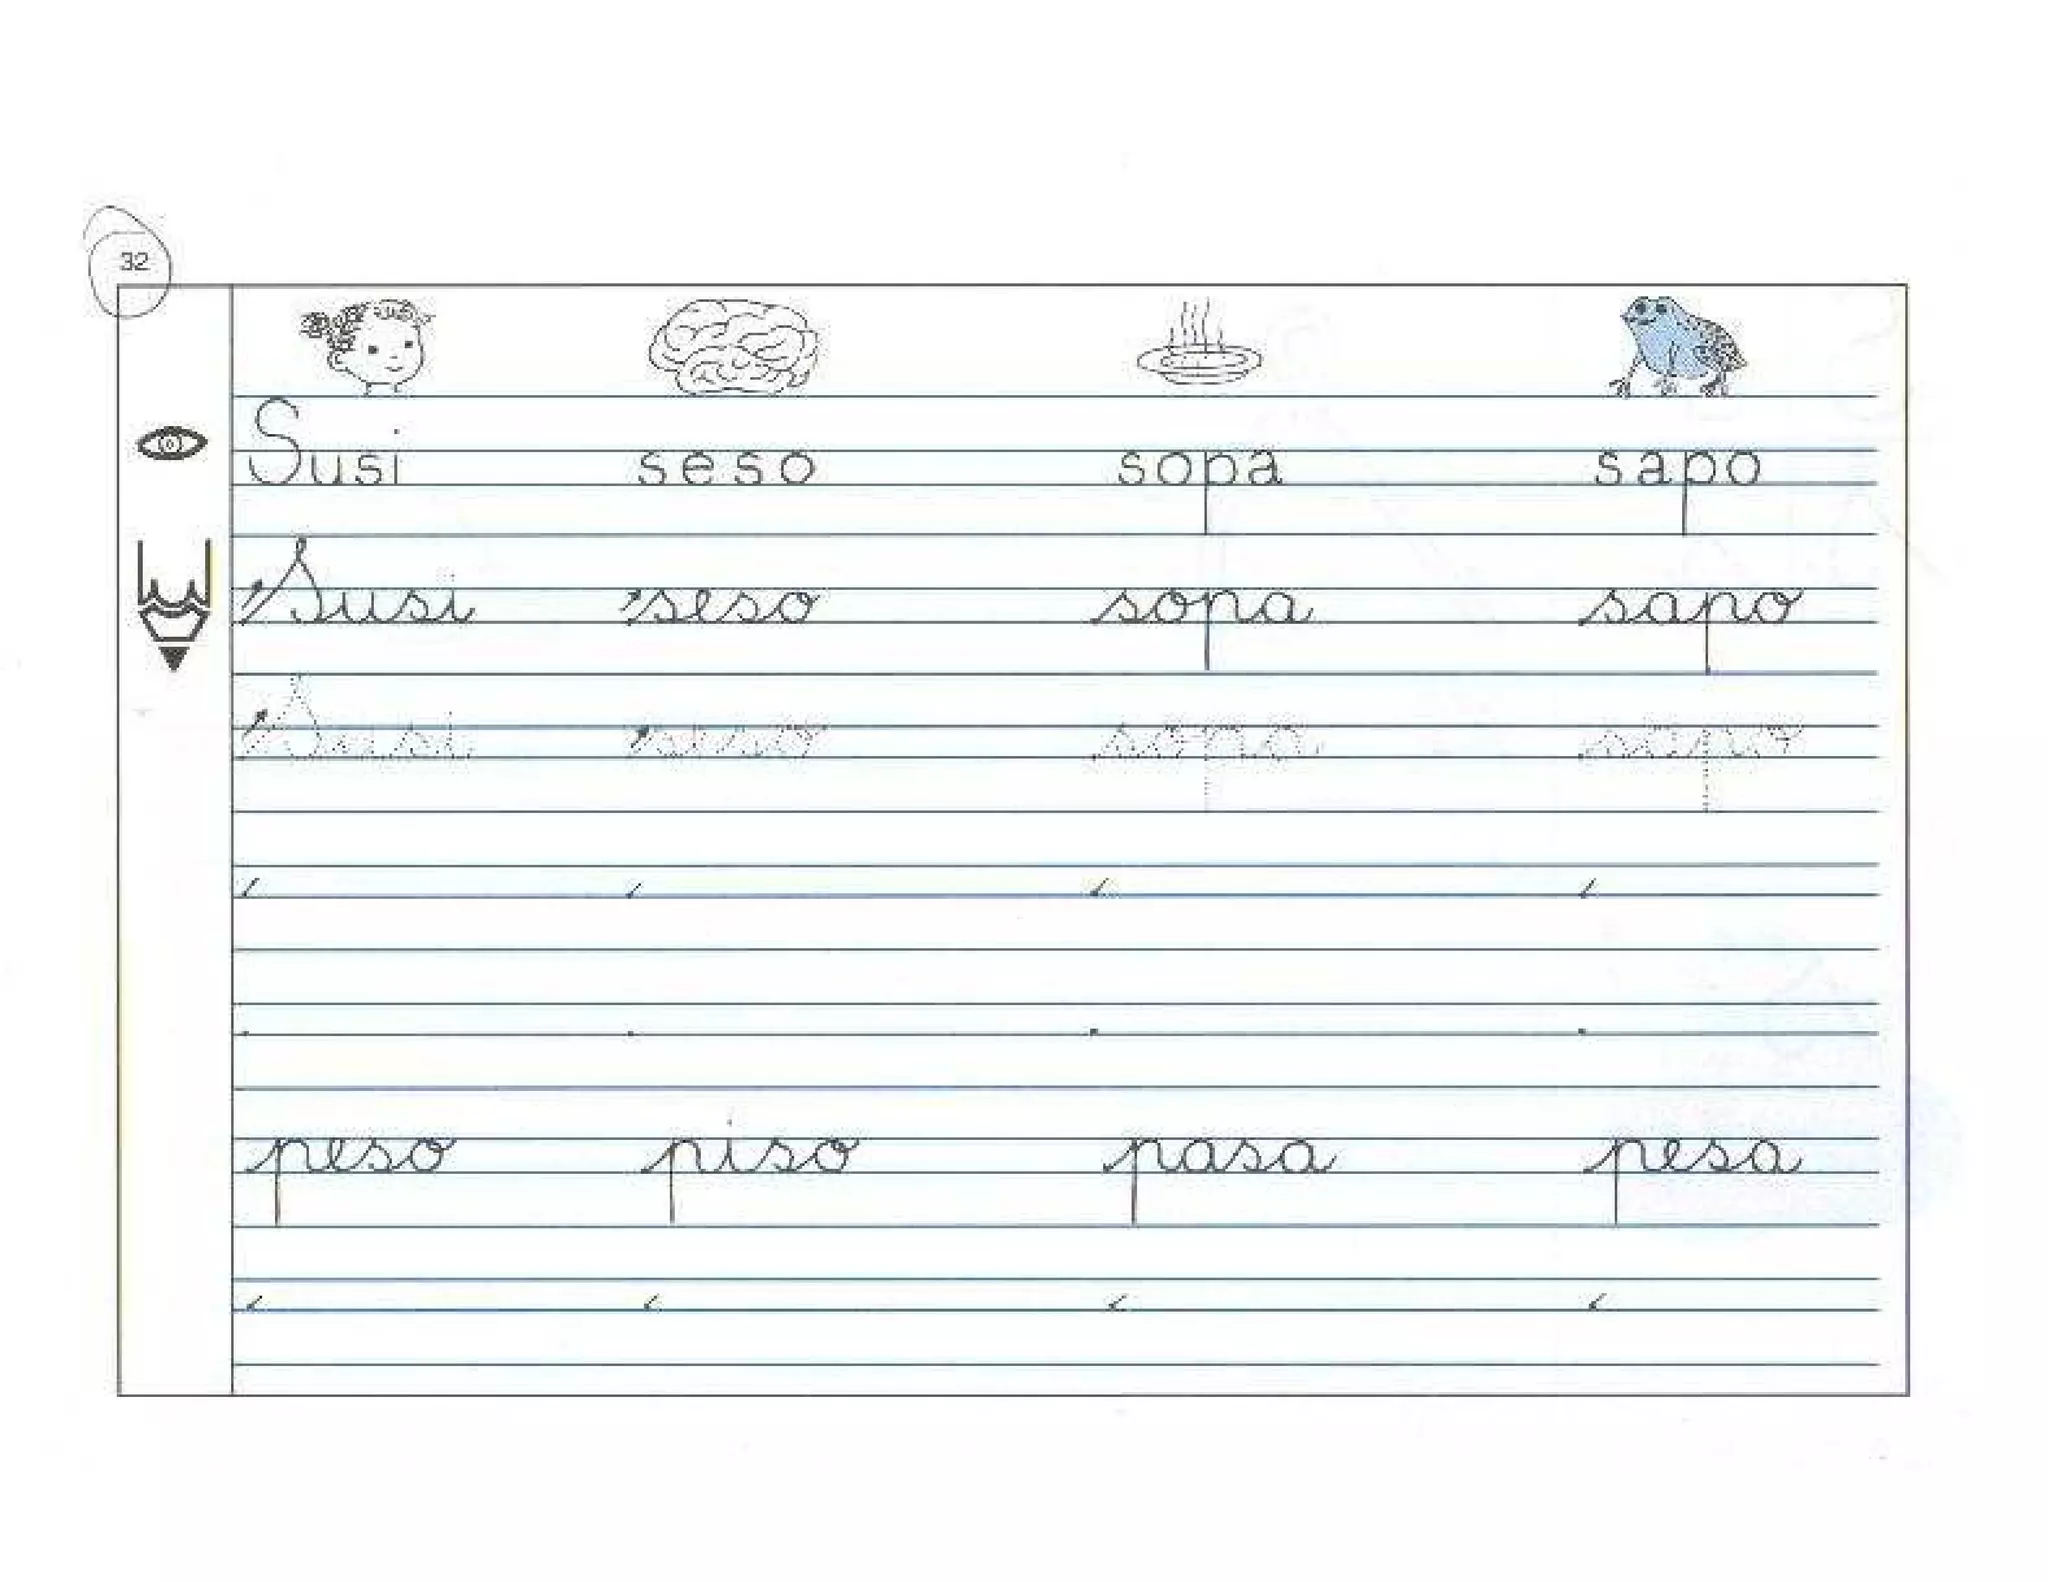 32
Susi seso sopa sapo
Susi seso sopa sapo
Susi seso sopa sapo
peso piso pasa pesa